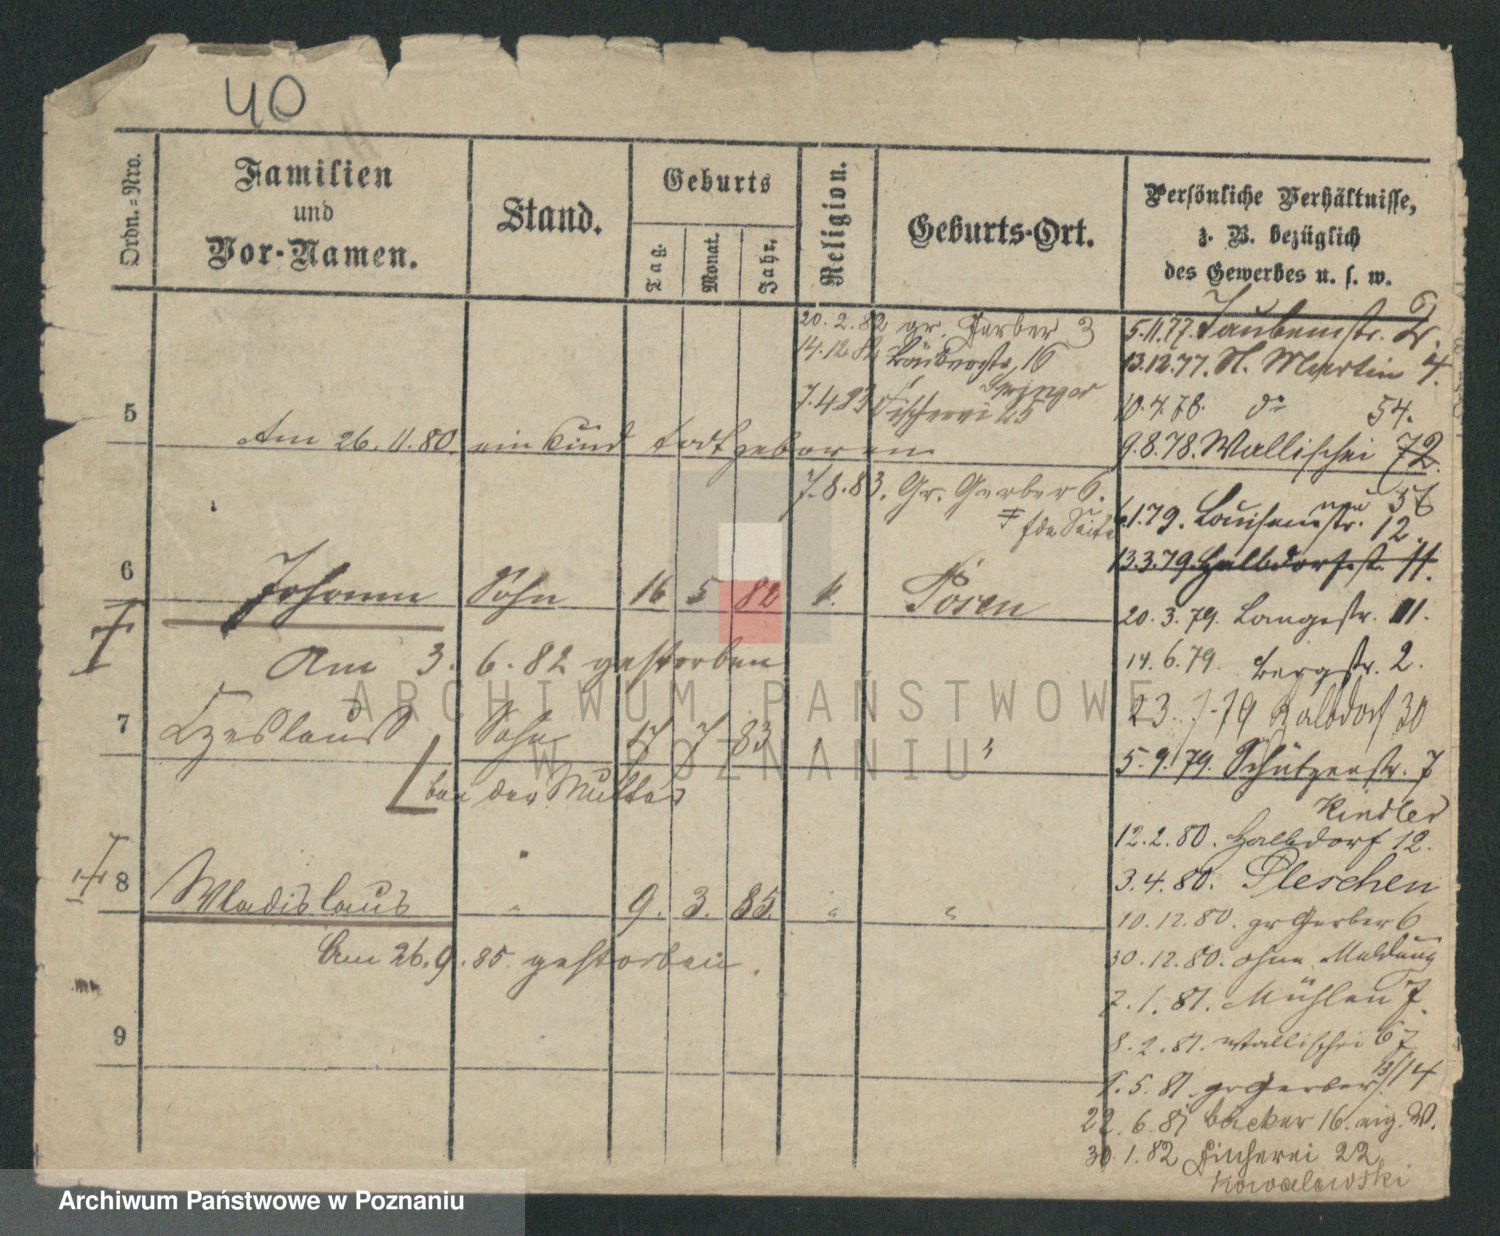 40
Ordn.=Nro.
Familien
und
Vor-Namen.
Stand.
Geburts
Tag.
Monat.
Jahr.
Religion.
Geburts-Ort.
Persönliche Verhältnisse,
z. B. bezüglich
des Gewerbes u. s. w.
20. 2. 82 gr. Gerber 3
14. 12 82 Bäckerstr. 16
7. 4 83 Fischerei 25
5
Am 26. 11. 80. ein Kind todtgeboren
7. 8. 83. Gr. Gerber 6.
6
Johann Sohn 16 5 82 k. Posen
Am 3. 6. 82 gestorben
7
Czeslaus Sohn 17 7 83 " "
bei der Mutter
8
Wladislaus " 9. 3. 85 " "
Am 26. 9. 85. gestorben.
9
5. 11. 77. Taubenstr. 2.
13. 12. 77. St. Martin 4.
10. 4. 78. do 54.
9. 8. 78. Wallischei 72.
neu 56
1. 79. Louisenstr. 12.
13. 3. 79. Halbdorfst. 11.
20. 3. 79. Langestr. 11.
14. 6. 79. Bergstr. 2.
23. 7. 79 Halbdorf 30
5. 9. 79. Schützenstr. 7
Kindler
12. 2. 80. Halbdorf 12.
3. 4. 80. Pleschen
10. 12. 80. gr Gerber 6
30. 12. 80. ohne Meldung
2. 1. 81. Mühlen 7.
8. 2. 81. Wallischei 67
5. 81. gr Gerber 13/14
22. 6. 81 Bäcker 16. eig. W.
30. 1. 82 Fischerei 22
Kowalewski
ARCHIWUM PAŃSTWOWE
W POZNANIU
Archiwum Państwowe w Poznaniu